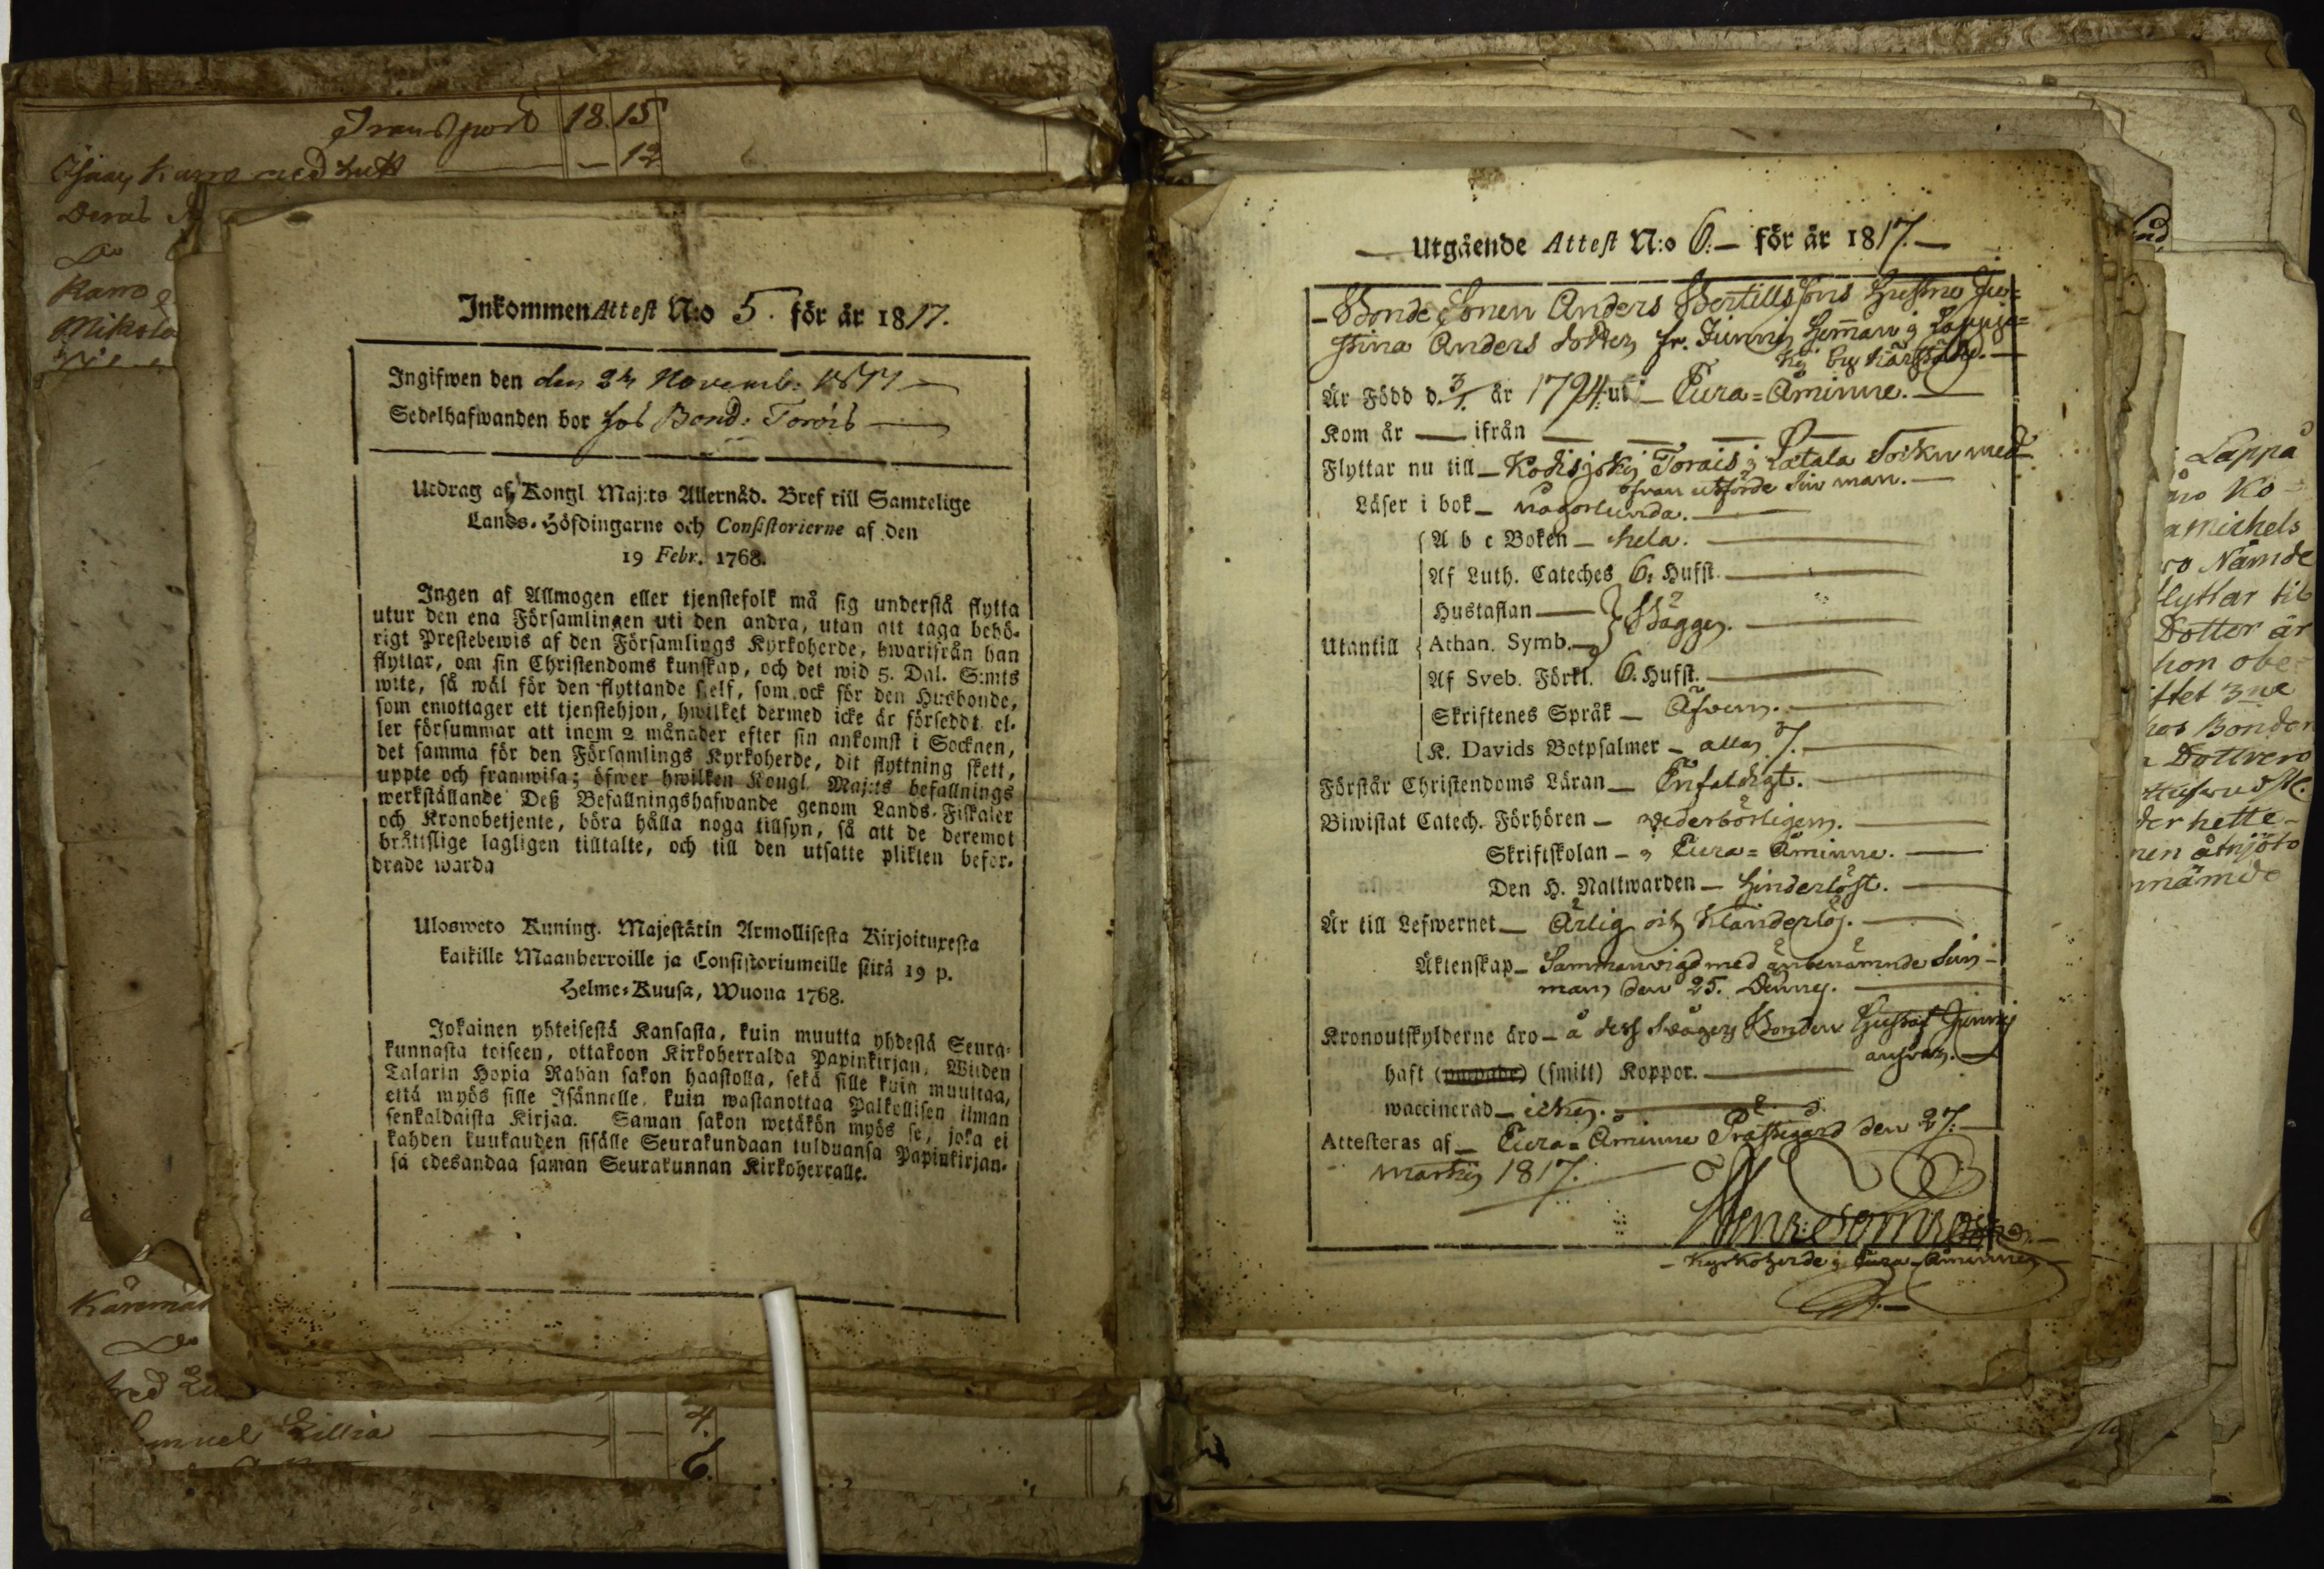 Transport 18. 15
— 12
Deras
Do
Karro
Mikola
Inkommen Attest N:o 5. för år 1817.
Ingifwen den den 24 Novemb: 1817
Sedelhafwanden bor hos Bond: Torois
Utdrag af Kongl. Maj:ts Allernåd. Bref till Samtelige
Lands-Höfdingarne och Consistorierne af den
19 Febr. 1768.
Ingen af Allmogen eller tjenstefolk må sig understå flytta
utur den ena Församlingen uti den andra, utan att taga behö-
rigt Prestebewis af den Församlings Kyrkoherde, hwarifrån han
flyttar, om sin Christendoms kunskap, och det wid 5. Dal. S:mts
wite, så wäl för den flyttande sielf, som ock för den Husbonde,
som emottager ett tjenstehjon, hwilket dermed icke är försedt, el-
ler försummar att inom 2 månader efter sin ankomst i Socknen,
det samma för den Församlings Kyrkoherde, dit flyttning skett,
uppte och framwisa; öfwer hwilken Kongl. Maj:ts befallnings
werkställande Deß Befallningshafwande genom Lands-Fiskaler
och Kronobetjente, böra hålla noga tillsyn, så att de deremot
bråttslige lagligen tilltalte, och till den utsatte plikten befor-
drade warda
Ulosweto Kuning. Majestätin Armollisesta Kirjoituxesta
kaikille Maanherroille ja Consistoriumeille siitä 19 p.
Helme-Kuusa, Wuona 1768.
Jokainen yhteisestä Kansasta, kuin muutta yhdestä Seura-
kunnasta toiseen, ottakoon Kirkoherralda Papinkirjan, Wiiden
Talarin Hopia Rahan sakon haastolla, sekä sille kuin muuttaa,
että myös sille Isännelle, kuin wastanottaa Palkollisen ilman
senkaldaista Kirjaa. Saman sakon wetäkön myös se, joka ei
kahden kuukauden sisälle Seurakundaan tulduansa Papinkirjan-
sa edesandaa saman Seurakunnan Kirkoherralle.
Samuel Lillia — 4.
6.
Utgående Attest N:o 6. för år 1817.
Bonde Sonen Anders Bertills sons Hustru Ju=
stina Anders dotter fr. Junni Hemman i Lappi=
by Kärstäby.
Är Född d. 3/1. år 1794 uti Eura=Åminne.
Kom år — ifrån —
Flyttar nu till Kodisjoki Torais i Letala Sokn med
ofvan utförde Sin man.
Läser i bok någorlunda.
A b c Boken hela.
Af Luth. Cateches 6. Hufst.
Hustaflan
Bägge.
Utantill Athan. Symb.
Af Sveb. Förkl. 6. Hufst.
Skriftenes Språk Äfven.
K. Davids Botpsalmer alla 7.
Förstår Christendoms Läran Enfaldigt.
Biwistat Catech. Förhören wederbörligen.
Skriftskolan i Eura=Åminne.
Den H. Nattwarden hinderlöst.
Är till Lefwernet Ärlig och klanderlös.
Äktenskap Sammanvigd med anbenämnde Sin
man den 25. Dennes.
Kronoutskylderne äro å dess svågers Bonden Gustaf Junni
answar.
haft (smitt) Koppor.
waccinerad icke.
Attesteras af Eura=Åminne Prästgård den 27.
Martii 1817.
Kyrkoherde i Eura=Åminne
Lappa
Ko=
Michels
Nämde
flyttar til
Dotter är
hon obe=
Bonden
Dottrens
hette
åtnjöto
nämde